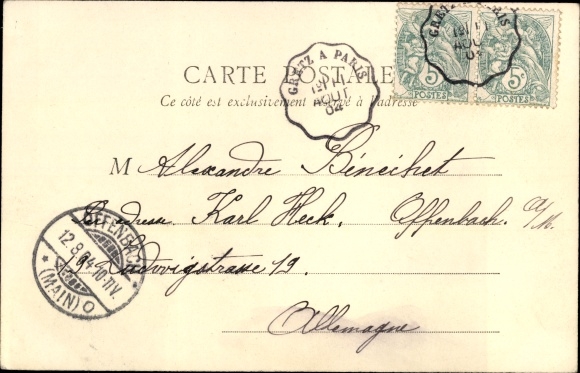 CARTE POSTALE
Ce côté est exclusivement réservé à l'adresse
GRETZ A PARIS
11
AOUT
04
GRETZ A PARIS
AOUT
04
5c 5c
POSTES POSTES
M Alexandre
Per adresse Karl Heck. Offenbach. a/M.
Ludwigstrasse 19.
Allemagne
OFFENBACH
12.8.04.10-11V.
* (MAIN) O *